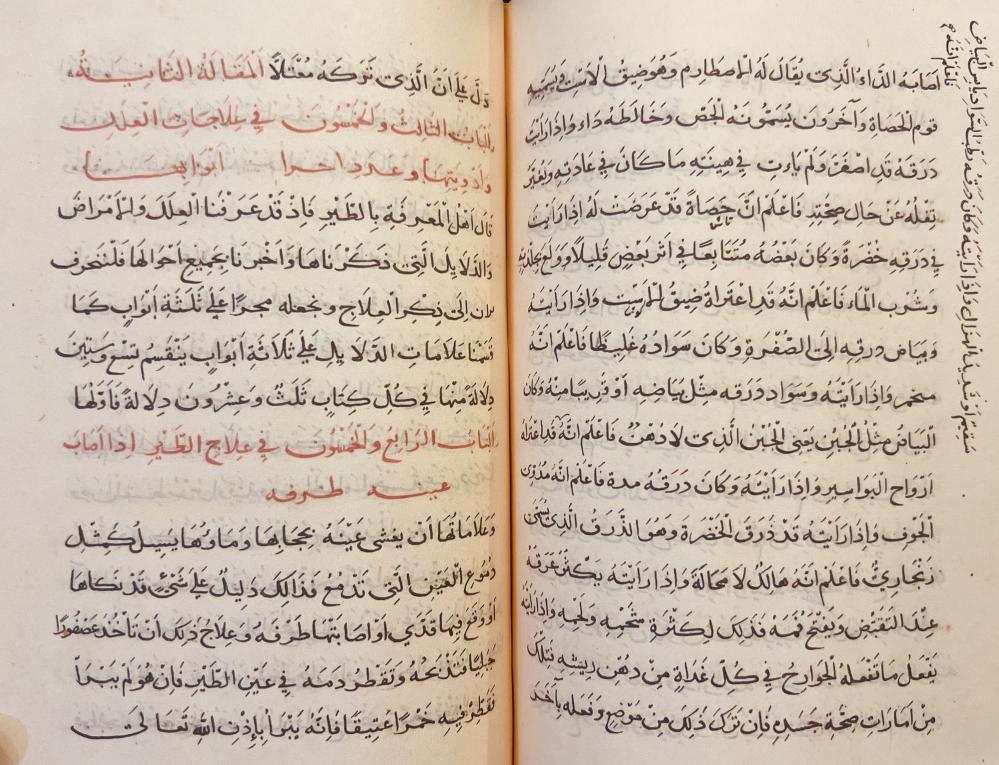 اصَابَهُ الدَّاءُ الَّذِي يُقَالُ لَهُ الاصطارم وَهُوَ ضِيقُ الاسْتِ وَيُسَمِّيهِ
قوم الحَصَاةَ وَآخَرُونَ يُسَمُّونَهُ الجَصَّ وَخَالَطَهُ دَاء وَاِذَا رَأَيْتَ
دَرَقَهُ قَدِ اصْفَرَّ وَلَمْ في هَيْئَتِهِ مَا كَانَ فِي عَادَتِهِ وَتَغَيَّرَ
ثِفْلُهُ عَنْ حَالِ صِحَّتِهِ فَاعْلَمْ انَّ حَصَاةً قَدْ عَرَضَتْ لَهُ اِذَا رَأَيْتَ
فِي دَرَقِهِ خُضْرَةً وَكَانَ بَعْضُهُ مُتَتَابِعًا فِي اَثَرِ بَعْضٍ قَلِيلًا وَوَلِعَ
وَشُرْبِ الْمَاء فَاعْلَمْ اَنَّهُ قَدِ اعْتَرَاهُ ضِيقُ الاسْتِ وَاِذَا رَأَيْتَهُ
وَبَيَاض دَرَقِهِ اِلَى الصُّفْرَةِ وَكَانَ سَوَادُهُ غَلِيظًا فَاعْلَمْ اَنَّهُ
متخم وَاِذَا رَأَيْتَهُ وَسَوَاد دَرَقِهِ مِثْل بَيَاضِهِ اَوْ قَرِيبًا مِنْهُ وَكَانَ
الْبَيَاضُ مِثْلَ الجُبْنِ يَعْنِي الجُبْنَ الَّذِي لَا دُهْنَ فَاعْلَمْ اَنَّهُ قَدِ اعْتَرَاهُ
اَرْوَاح الْبَوَاسِيرِ وَاِذَا رَأَيْتَهُ وَكَانَ دَرَقُهُ مِدة فَاعْلَمْ اَنَّهُ
الْجَوْفِ وَاِذَا رَأَيْتَهُ قَدْ ذَرَقَ الْخُضْرَةَ وَهُوَ الذَّرَقُ الَّذِي يُسَمَّى
زَنْجَارِيٌّ فَاعْلَمْ اَنَّهُ هَالِكٌ لَا مَحَالَةَ وَاِذَا رَأَيْتَهُ يَكْثُرُ عَرَقُهُ
عِنْدَ التَّقَبُّضِ وَيَفْتَحُ فَمَهُ فَذَلِكَ لِكَثْرَةِ شَحْمِهِ وَلَحْمِهِ وَاِذَا رَأَيْتَهُ
يَفْعَلُ مَا تَفْعَلُهُ الْجَوَارِحُ فِي كُلِّ غَدَاةٍ مِنْ دُهْنِ رِيشِهِ فَتِلْكَ
مِنْ اَمَارَاتِ صِحَّةِ جَسَدِهِ فَاِنْ تَرَكَ ذَلِكَ مِنْ مَوْضِعٍ وَفَعَلَهُ بِآخَرَ
دَلَّ عَلَى اَنَّ الَّذِي تَرَكَهُ مُعْتَلًّا اَلْمَقَالَةُ الثَّانِيَةُ
الْبَابُ الثَّالِثُ وَالْخَمْسُونَ فِي عِلَاجَاتِ الْعِلَلِ
وَاَدْوِيَتِهَا وَعَدَدِ اجزا اَبْوَابِهَا
قَالَ اَهْلُ الْمَعْرِفَةِ بِالطَّيْرِ فَاِذْ قَدْ عَرَفْنَا الْعِلَلَ وَالاَمْرَاضَ
وَالدَّلَايِلَ الَّتِي ذَكَرْنَاهَا وَاَخْبَرْنَا بِجَمِيعِ اَحْوَالِهَا فَلْنَنْحَرِف
الان اِلَى ذِكْرِ الْعِلَاجِ وَنَجْعَلُهُ مجزا عَلَى ثَلٰثَةِ اَبْوَابٍ كَمَا
قَسَمْنَا عَلَامَاتِ الدَّلَايِلِ عَلَى ثَلَاثَةِ اَبْوَابٍ يَنْقَسِمُ تِسْع وَسِتِّينَ
دِلَالَةً مِنْهَا فِي كُلِّ كِتَابٍ ثَلٰثُ وَعِشْرُونَ دِلَالَةً فَاَوَّلُهَا
الْبَابُ الرَّابِعُ وَالْخَمْسُونَ فِي عِلَاجِ الطَّيْرِ اِذَا اَصَابَ
عَيْنَهُ طَرْفَه
وَعَلَامَاتُهَا اَنْ يَغْشَى عَيْنَهُ حِجَابُهَا وَمَاؤُهَا يَسِيلُ كَمِثْلِ
دُمُوعِ الْعَيْنِ الَّتِي تَدْمَعُ فَذَالِكَ دَلِيلٌ عَلَى شَيْءٍ قَدْ نَكَاهَا
اَوْ وَقَعَ فِيهَا قَذًي اَوْ اَصَابَتْهَا طَرْفَه وَعِلَاجُ ذَلِكَ اَنْ تَأْخُذَ عُصْفُورًا
جَبَلِيًّا فَتَذْبَحَهُ وَتَقْطُرُ دَمَهُ فِي عَيْنِ الطَّيْرِ فَاِنْ هُوَ لَمْ يَبْرَأْ
تُقَطِّرُ فِيهِ خَمْرًا عَتِيقًا فَاِنَّهُ يَبْرَأُ بِاِذْنِ اللهِ تَعَالَى